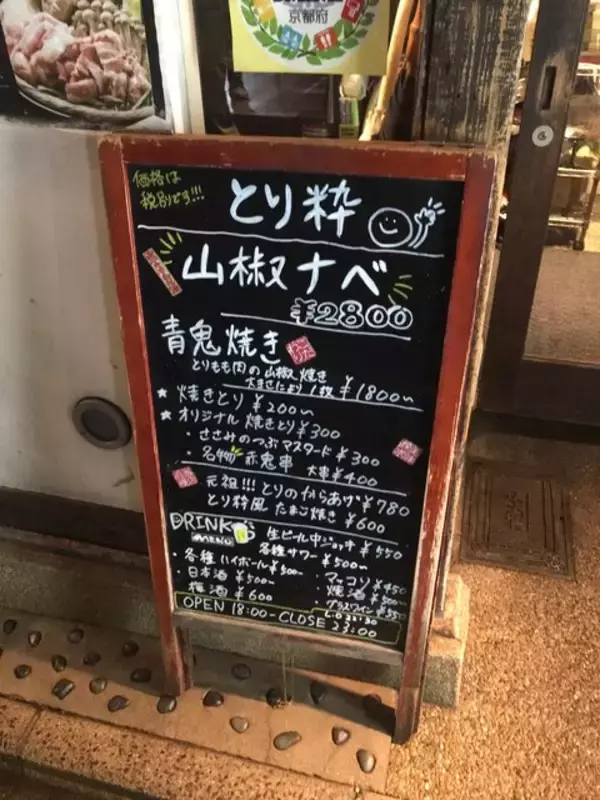 京都府
価格は
税別です!!!
とり粋
山椒ナベ
¥2800
青鬼焼き
とりもも肉の山椒焼き
大きさにより 1枚 ¥1800〜
★ 焼きとり ¥200〜
★ オリジナル 焼きとり ¥300
・ささみのつぶマスタード ¥300
・名物 赤鬼串 大串 ¥400
元祖!!! とりのからあげ ¥780
とり粋風 たまご焼き ¥600
DRINK
MENU
生ビール中ジョッキ ¥550
各種サワー ¥500〜
・各種ハイボール ¥500〜
・日本酒 ¥500〜
・梅酒 ¥600
・マッコリ ¥450
・焼酒 ¥500〜
・グラスワイン ¥550
OPEN 18:00-CLOSE 23:00
L.O 22:30